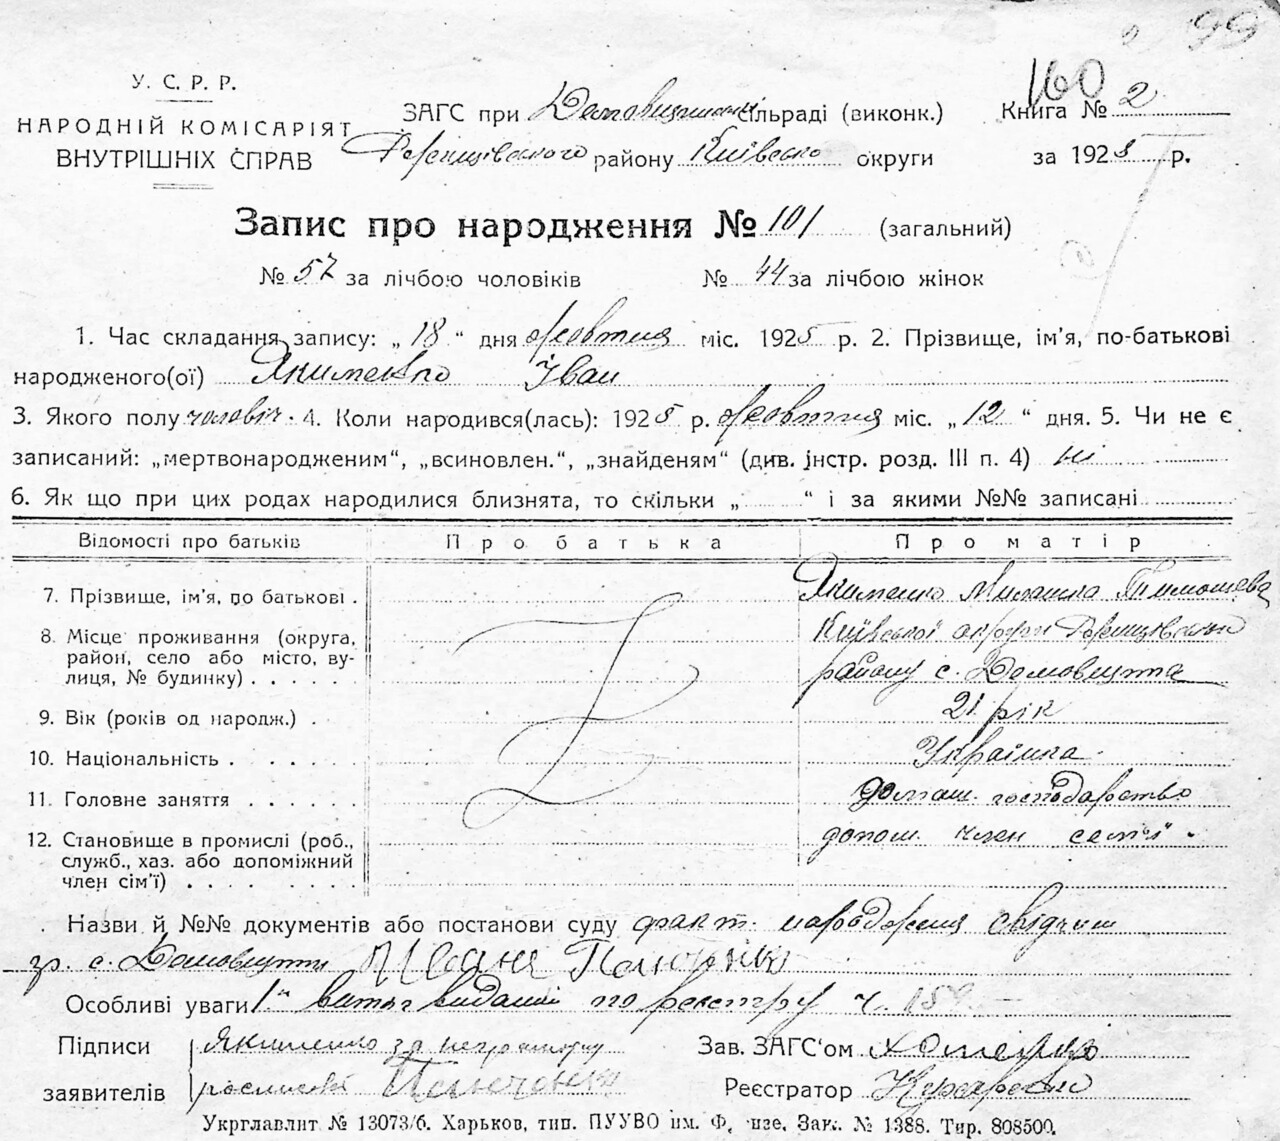 99
160
У. С. Р. Р.
НАРОДНІЙ КОМІСАРІЯТ
ВНУТРІШНІХ СПРАВ
ЗАГС при сільраді (виконк.) Книга № 2
району Київсько округи за 1925 р.
Запис про народження № 101 (загальний)
№ 57 за лічбою чоловіків № 44 за лічбою жінок
1. Час складання запису: „ 18 “ дня жовтня міс. 1925 р. 2. Прізвище, ім'я, по-батькові
народженого(ої) Якименко Іван
3. Якого полу чоловіч. 4. Коли народився(лась): 1925 р. жовтня міс. „ 12 “ дня. 5. Чи не є
записаний: „мертвонародженим“, „всиновлен.“, „знайденям“ (див. інстр. розд. III п. 4) ні
6. Як що при цих родах народилися близнята, то скільки „ “ і за якими №№ записані
Відомості про батьків Про батька Про матір
7. Прізвище, ім'я, по батькові . Якименко Тимошева
8. Місце проживання (округа, Київської округи
район, село або місто, ву- району с.
лиця, № будинку) . . . . .
9. Вік (років од народж.) . 21 рік
10. Національність . . . . . Українка
11. Головне заняття . . . . . домаш. господарство
12. Становище в промислі (роб., допом. член сем'ї.
служб., хаз. або допоміжний
член сім'ї) . . . . . . .
Назви й №№ документів або постанови суду факт. народження свідчит
гр. с.
Особливі уваги витяг виданий по реєстру ч. 159
Підписи Якименко за неграмотну Зав. ЗАГС'ом
заявителів Реєстратор
Укрглавлит № 13073/б. Харьков, тип. ПУУВО им. Ф нзе, Зак. № 1388. Тир. 808500.